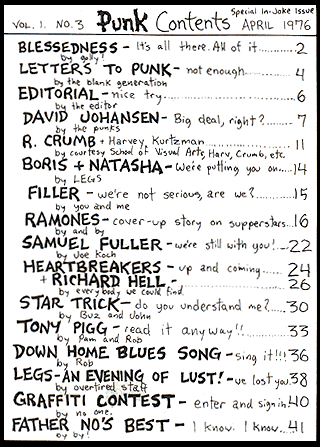 Special In-Joke Issue
VOL. 1. NO. 3 Punk Contents APRIL 1976
BLESSEDNESS - It's all there. All of it..........2
by golly!
LETTERS TO PUNK - not enough..........4
by the blank generation
EDITORIAL - nice try..........6
by the editor
DAVID JOHANSEN - Big deal, right?.......7
by the punks
R. CRUMB + Harvey Kurtzman..........11
by courtesy School of Visual Arts, Harv, Crumb, etc.
BORIS + NATASHA - We're putting you on....14
by LEGS
FILLER - we're not serious, are we?.....15
by you and me
RAMONES - cover-up story on supperstars...16
by and by
SAMUEL FULLER - we're still with you!...22
by Joe Koch
HEARTBREAKERS - up and coming......24
+ RICHARD HELL -..........26
by everybody we could find
STAR TRICK - do you understand me?....30
by Buz and John
TONY PIGG - read it anyway!!..........33
by Pam and Rob
DOWN HOME BLUES SONG - sing it!!!36
by Rob
LEGS - AN EVENING OF LUST! - we lost you.38
by overtired staff
GRAFFITI CONTEST - enter and sign in 40
by no one.
FATHER NO'S BEST - I know. I know...41
by by!